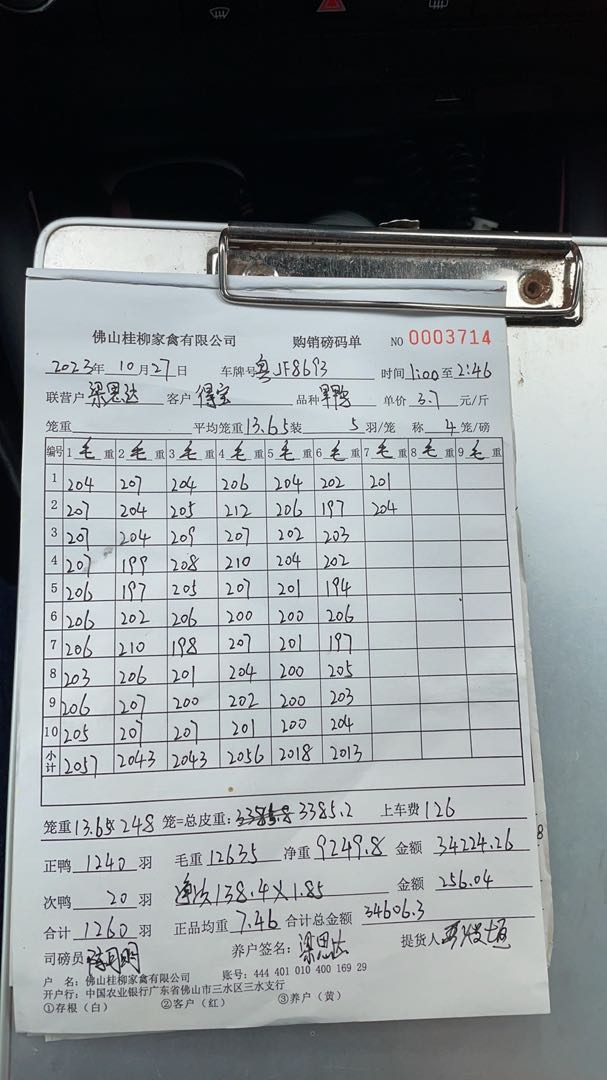 佛山桂柳家禽有限公司 购销磅码单 NO 0003714
2023年 10月27日 车牌号粤JF8693 时间1:00至2:46
联营户梁思达 客户得宝 品种 单价 3.7 元/斤
笼重 平均笼重13.65装 5 羽/笼 称 4 笼/磅
编号 1 毛 重 2 毛 重 3 毛 重 4 毛 重 5 毛 重 6 毛 重 7 毛 重 8 毛 重 9 毛 重
1 204 207 204 206 204 202 201
2 207 204 205 212 206 197 204
3 207 204 209 207 202 203
4 207 199 208 210 204 202
5 206 197 205 207 201 194
6 206 202 206 200 200 206
7 206 210 198 207 201 197
8 203 206 201 204 200 205
9 206 207 200 202 200 203
10 205 207 207 201 200 204
小计 2057 2043 2043 2056 2018 2013
笼重13.65×248 笼=总皮重: 3385.2 上车费126
正鸭 1240 羽 毛重12635 净重9249.8 金额34224.26
次鸭 20 羽 138.4×1.85 金额256.04
合计1260羽 正品均重7.46 合计总金额34606.3
司磅员 养户签名:梁思达 提货人
户 名:佛山桂柳家禽有限公司 账号:444 401 010 400 169 29
开户行:中国农业银行广东省佛山市三水区三水支行
①存根(白) ②客户(红) ③养户(黄)
8